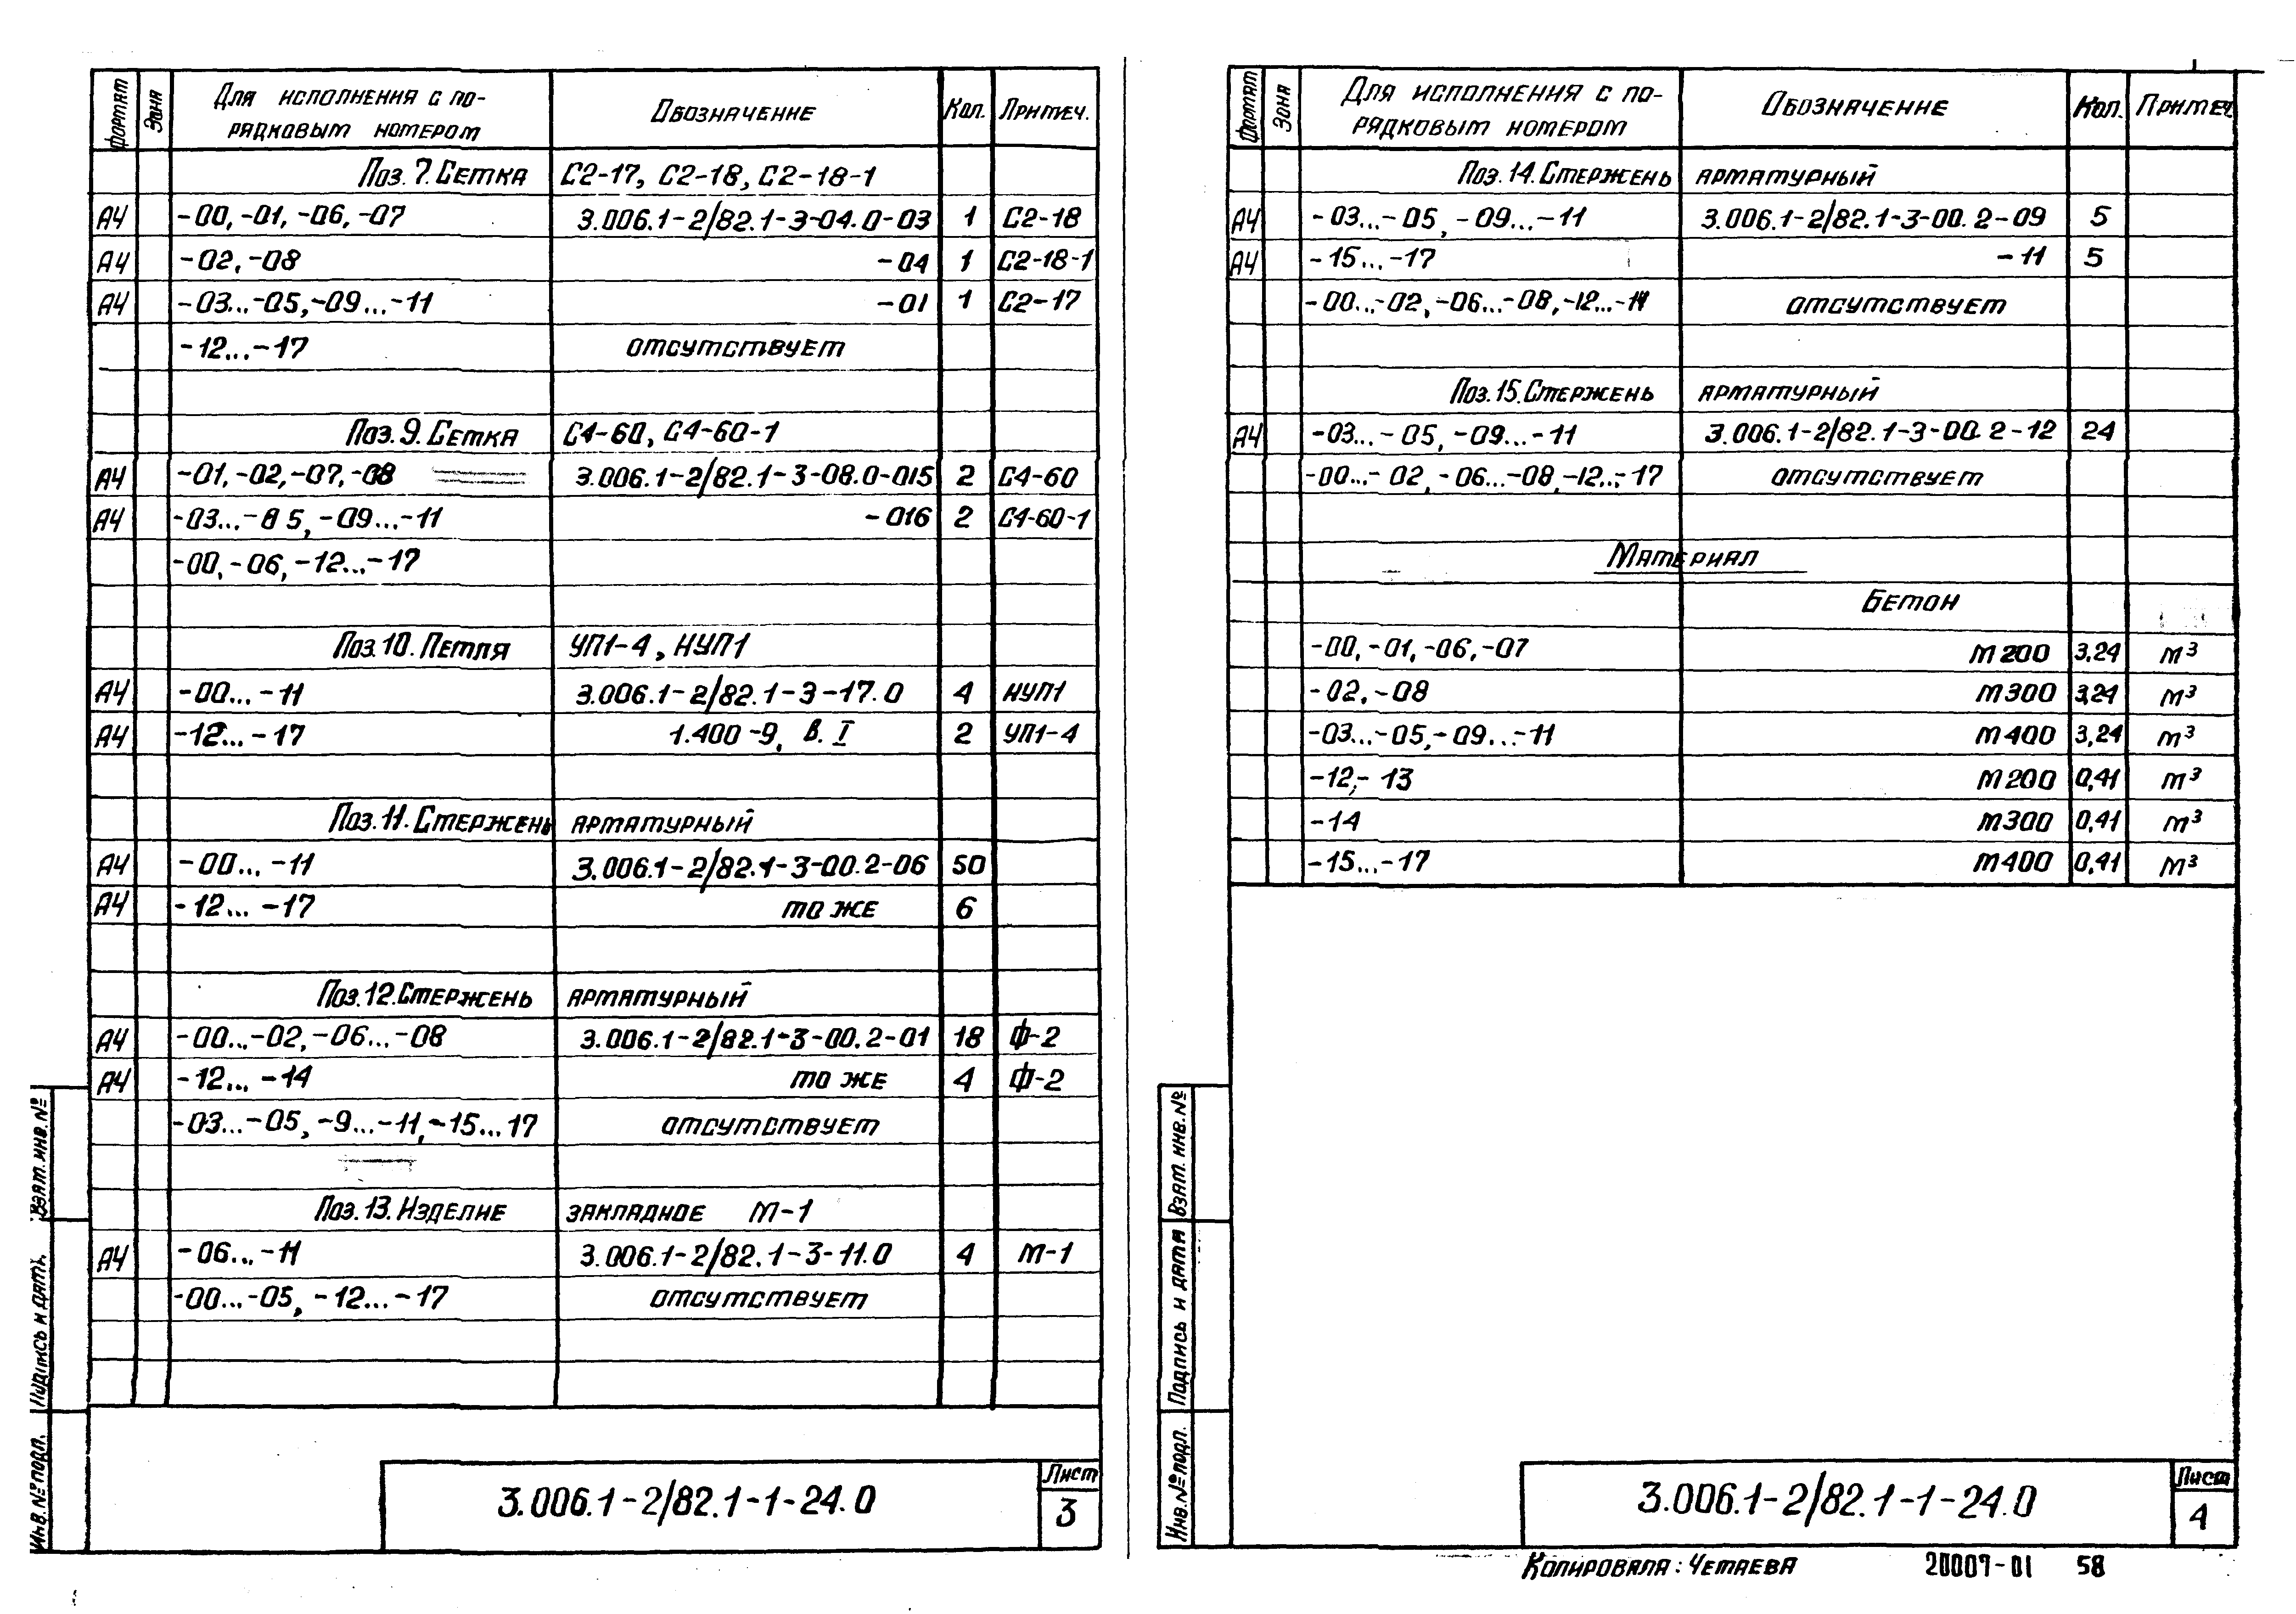 Формат Зона Для исполнения с по- Обозначение Кол. Примеч.
рядковым номером
Поз. 7. Сетка С2-17, С2-18, С2-18-1
А4 -00, -01, -06, -07 3.006.1-2/82.1-3-04.0-03 1 С2-18
А4 -02, -08 -04 1 С2-18-1
А4 -03...-05, -09...-11 -01 1 С2-17
-12...-17 отсутствует
Поз. 9. Сетка С4-60, С4-60-1
А4 -01, -02, -07, -08 3.006.1-2/82.1-3-08.0-015 2 С4-60
А4 -03...-05, -09...-11 -016 2 С4-60-1
-00, -06, -12...-17
Поз. 10. Петля УП1-4, НУП1
А4 -00...-11 3.006.1-2/82.1-3-17.0 4 НУП1
А4 -12...-17 1.400-9, в. I 2 УП1-4
Поз. 11. Стержень арматурный
А4 -00...-11 3.006.1-2/82.1-3-00.2-06 50
А4 -12...-17 то же 6
Поз. 12. Стержень арматурный
А4 -00...-02, -06...-08 3.006.1-2/82.1-3-00.2-01 18 Ф-2
А4 -12...-14 то же 4 Ф-2
-03...-05, -9...-11, -15...17 отсутствует
Поз. 13. Изделие закладное М-1
А4 -06...-11 3.006.1-2/82.1-3-11.0 4 М-1
-00...-05, -12...-17 отсутствует
Инв. № подл. Подпись и дата Взят. инв. №
3.006.1-2/82.1-1-24.0 Лист
3
Формат Зона Для исполнения с по- Обозначение Кол. Примеч
рядковым номером
Поз. 14. Стержень арматурный
А4 -03...-05, -09...-11 3.006.1-2/82.1-3-00.2-09 5
А4 -15...-17 -11 5
-00...-02, -06...-08, -12...-14 отсутствует
Поз. 15. Стержень арматурный
А4 -03...-05, -09...-11 3.006.1-2/82.1-3-00.2-12 24
-00...-02, -06...-08, -12...-17 отсутствует
Материал
Бетон
-00, -01, -06, -07 М200 3,24 м³
-02, -08 М300 3,24 м³
-03...-05, -09...-11 М400 3,24 м³
-12, -13 М200 0,41 м³
-14 М300 0,41 м³
-15...-17 М400 0,41 м³
Инв. № подл. Подпись и дата Взят. инв. №
3.006.1-2/82.1-1-24.0 Лист
4
Копировала: Четаева 20007-01 58